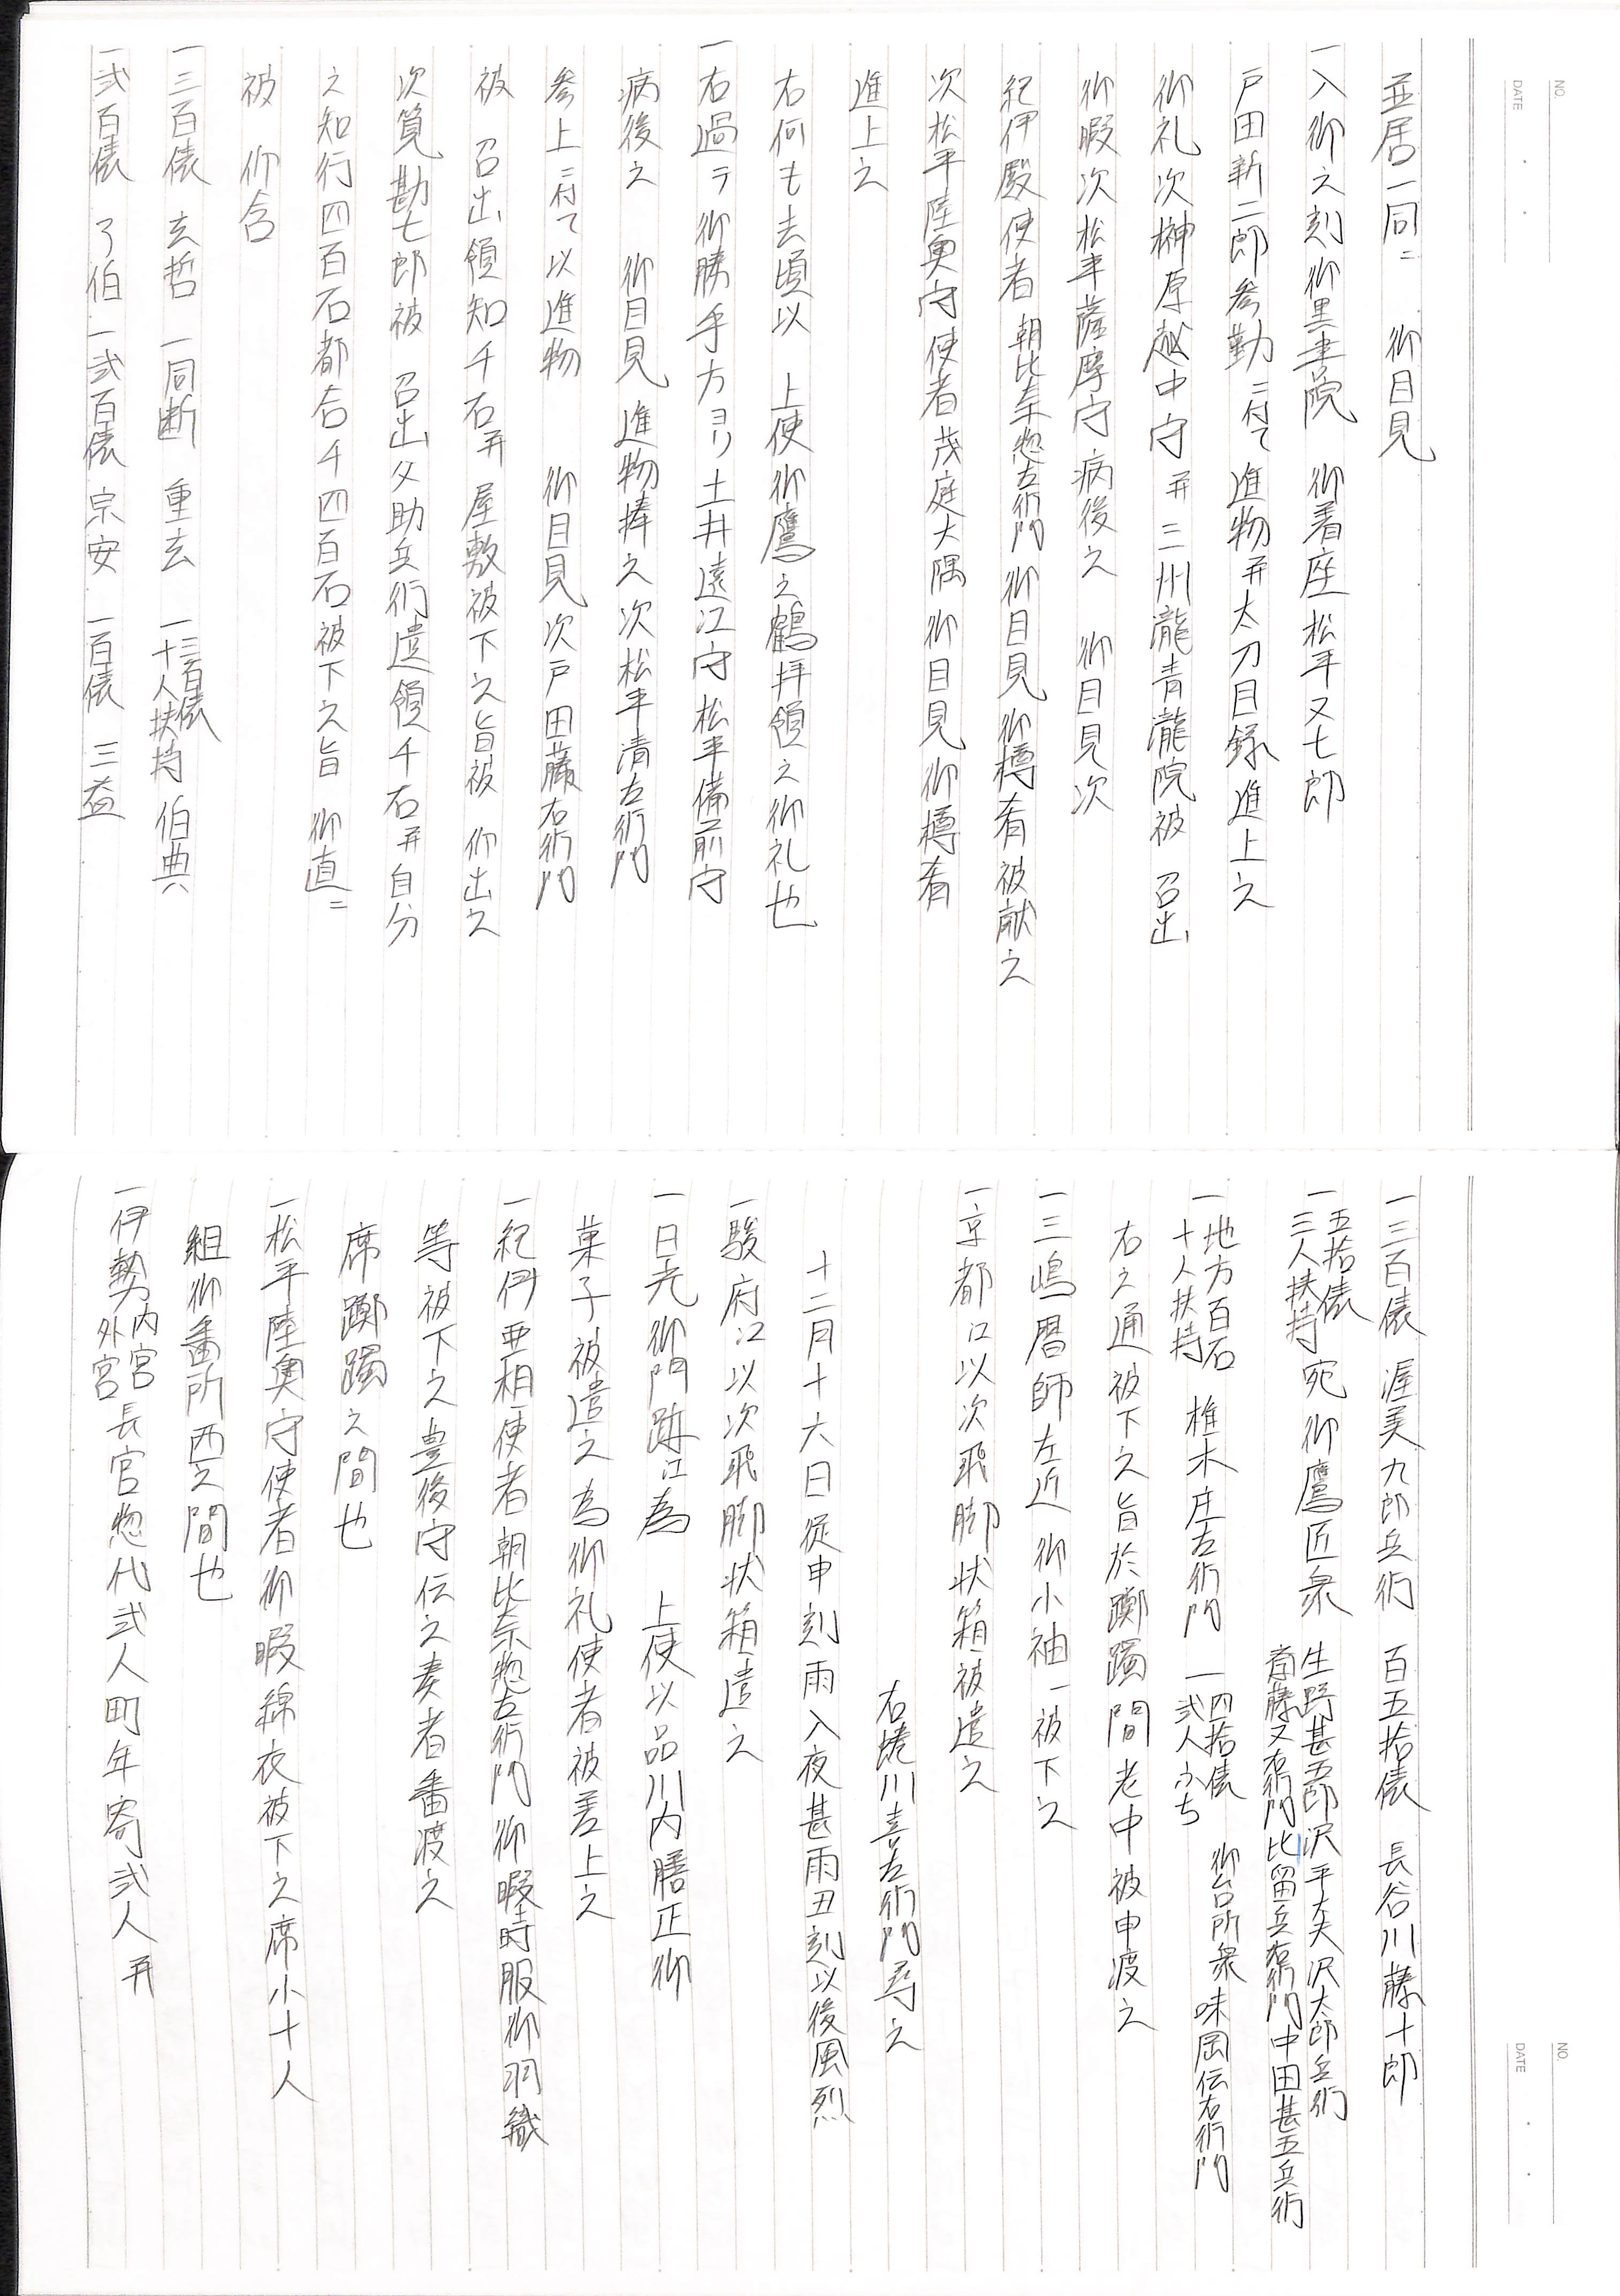 NO.
DATE
並居一同ニ　御目見
一入御之刻御黒書院　御着座松平又七郎
戸田新二郎参勤ニ付て進物并太刀目録進上之
御礼次榊原越中守并三州瀧青瀧院被　召出
御暇次松平薩摩守病後之　御目見次
紀伊殿使者朝比奈惣左衛門御目見御樽肴被献之
次松平陸奥守使者茂庭大隅御目見御樽肴
進上之
右何も去頃以　上使御鷹之鶴拝領之御礼也
一右過テ御勝手方ヨリ土井遠江守松平備前守
病後之　御目見進物捧之次松平清左衛門
参上ニ付て以進物　御目見次戸田藤右衛門
被　召出領知千石并屋敷被下之旨被　仰出之
次筧勘七郎被　召出父助兵衛遺領千石并自分
之知行四百石都合千四百石被下之旨　御直ニ
被　仰含
一三百俵　玄哲　一同断　重玄　一三百俵十人扶持　伯典
一弐百俵　了伯　一弐百俵　宗安　一百俵　三益
NO.
DATE
一三百俵　渥美九郎兵衛　百五拾俵　長谷川藤十郎
一五拾俵三人扶持宛御鷹匠衆　生野甚五郎沢平太夫沢太郎兵衛
斎藤又右衛門比留兵右衛門中田甚五兵衛
一地方百石十人扶持　椎木庄左衛門　一四拾俵弐人ふち　御台所衆味岡伝右衛門
右之通被下之旨於躑躅間老中被申渡之
一三嶋暦師左近御小袖一被下之
一京都江以次飛脚状箱被遣之
右蜷川喜左衛門尋之
十二月十六日従申刻雨入夜甚雨丑刻以後風烈
一駿府江以次飛脚状箱遣之
一日光御門跡江為　上使以品川内膳正御
菓子被遣之為御礼使者被差上之
一紀伊亜相使者朝比奈惣左衛門御暇時服御羽織
等被下之豊後守伝之奏者番渡之
席躑躅之間也
一松平陸奥守使者御暇綿衣被下之席小十人
組御番所西之間也
一伊勢内宮外宮長官惣代弐人町年寄弐人并